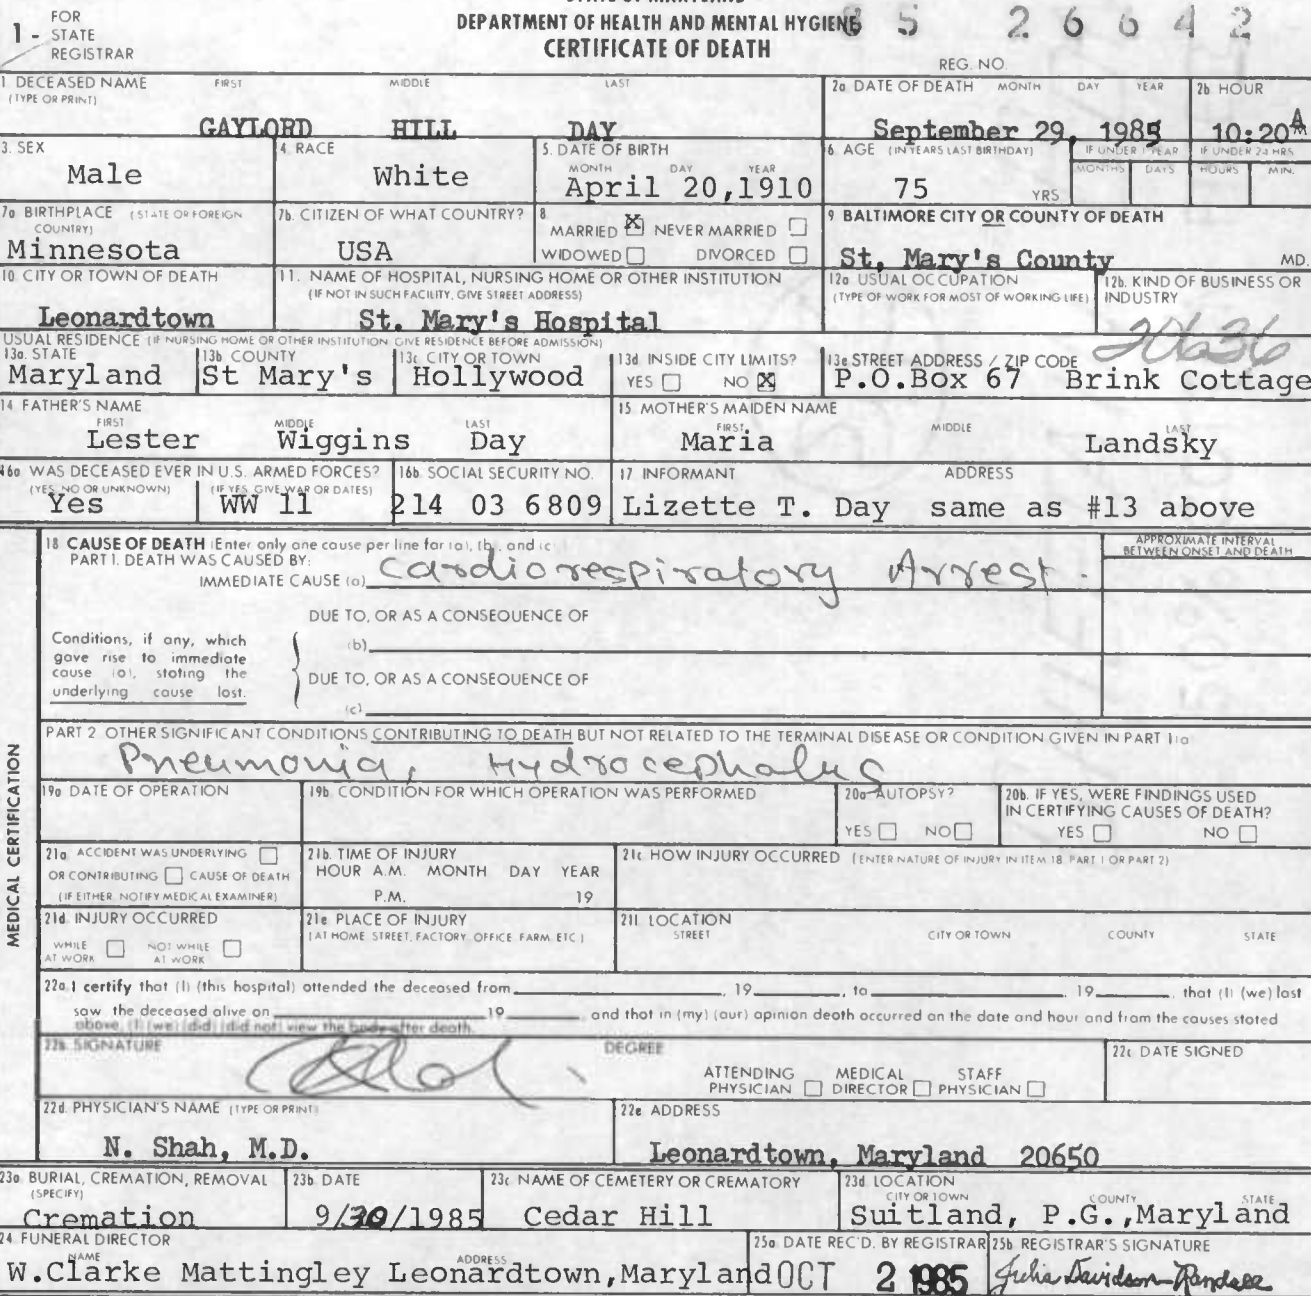 FOR
1 - STATE
REGISTRAR
DEPARTMENT OF HEALTH AND MENTAL HYGIENE
CERTIFICATE OF DEATH
5 26642
REG. NO.
1 DECEASED NAME FIRST MIDDLE LAST
(TYPE OR PRINT)
GAYLORD HILL DAY
2a DATE OF DEATH MONTH DAY YEAR
September 29, 1985
2b HOUR
10:20 A
3. SEX
Male
4. RACE
White
5. DATE OF BIRTH
MONTH DAY YEAR
April 20,1910
6. AGE (IN YEARS LAST BIRTHDAY)
75 YRS
IF UNDER 1 YEAR
MONTHS DAYS
IF UNDER 24 HRS
HOURS MIN.
7a BIRTHPLACE (STATE OR FOREIGN
COUNTRY)
Minnesota
7b. CITIZEN OF WHAT COUNTRY?
USA
8
MARRIED X NEVER MARRIED
WIDOWED DIVORCED
9 BALTIMORE CITY OR COUNTY OF DEATH
St. Mary's County MD.
10 CITY OR TOWN OF DEATH
Leonardtown
11. NAME OF HOSPITAL, NURSING HOME OR OTHER INSTITUTION
(IF NOT IN SUCH FACILITY, GIVE STREET ADDRESS)
St. Mary's Hospital
12a USUAL OCCUPATION
(TYPE OF WORK FOR MOST OF WORKING LIFE)
12b. KIND OF BUSINESS OR
INDUSTRY
USUAL RESIDENCE (IF NURSING HOME OR OTHER INSTITUTION GIVE RESIDENCE BEFORE ADMISSION)
13a. STATE
Maryland
13b COUNTY
St Mary's
13c CITY OR TOWN
Hollywood
13d INSIDE CITY LIMITS?
YES NO X
13e STREET ADDRESS / ZIP CODE 20636
P.O.Box 67 Brink Cottage
14 FATHER'S NAME
FIRST MIDDLE LAST
Lester Wiggins Day
15 MOTHER'S MAIDEN NAME
FIRST MIDDLE LAST
Maria Landsky
16a WAS DECEASED EVER IN U.S. ARMED FORCES?
(YES, NO OR UNKNOWN) (IF YES, GIVE WAR OR DATES)
Yes WW 11
16b. SOCIAL SECURITY NO.
214 03 6809
17 INFORMANT ADDRESS
Lizette T. Day same as #13 above
MEDICAL CERTIFICATION
18 CAUSE OF DEATH (Enter only one cause per line for (a), (b), and (c)
PART I. DEATH WAS CAUSED BY:
IMMEDIATE CAUSE (a) Cardiorespiratory Arrest.
APPROXIMATE INTERVAL
BETWEEN ONSET AND DEATH
DUE TO, OR AS A CONSEQUENCE OF
(b)
Conditions, if any, which
gave rise to immediate
cause (a), stating the
underlying cause last.
DUE TO, OR AS A CONSEQUENCE OF
(c)
PART 2 OTHER SIGNIFICANT CONDITIONS CONTRIBUTING TO DEATH BUT NOT RELATED TO THE TERMINAL DISEASE OR CONDITION GIVEN IN PART 1(a)
Pneumonia, Hydrocephalus
19a DATE OF OPERATION
19b CONDITION FOR WHICH OPERATION WAS PERFORMED
20a AUTOPSY?
YES NO
20b. IF YES, WERE FINDINGS USED
IN CERTIFYING CAUSES OF DEATH?
YES NO
21a ACCIDENT WAS UNDERLYING
OR CONTRIBUTING CAUSE OF DEATH
(IF EITHER NOTIFY MEDICAL EXAMINER)
21b. TIME OF INJURY
HOUR A.M. MONTH DAY YEAR
P.M. 19
21c HOW INJURY OCCURRED (ENTER NATURE OF INJURY IN ITEM 18, PART 1 OR PART 2)
21d INJURY OCCURRED
WHILE AT WORK NOT WHILE AT WORK
21e PLACE OF INJURY
(AT HOME STREET, FACTORY OFFICE FARM ETC)
21f. LOCATION
STREET CITY OR TOWN COUNTY STATE
22a I certify that (I) (this hospital) attended the deceased from , 19 , to , 19 , that (I) (we) last
saw the deceased alive on 19 , and that in (my) (our) opinion death occurred on the date and hour and from the causes stated
above. (I) (we) (did) (did not) view the body after death.
22b SIGNATURE DEGREE
ATTENDING PHYSICIAN MEDICAL DIRECTOR STAFF PHYSICIAN
22c DATE SIGNED
22d. PHYSICIAN'S NAME (TYPE OR PRINT)
N. Shah, M.D.
22e ADDRESS
Leonardtown, Maryland 20650
23a BURIAL, CREMATION, REMOVAL
(SPECIFY)
Cremation
23b DATE
9/30/1985
23c NAME OF CEMETERY OR CREMATORY
Cedar Hill
23d LOCATION
CITY OR TOWN COUNTY STATE
Suitland, P.G.,Maryland
24 FUNERAL DIRECTOR
NAME ADDRESS
W.Clarke Mattingley Leonardtown,Maryland
25a DATE REC'D. BY REGISTRAR
OCT 2 1985
25b REGISTRAR'S SIGNATURE
Julia Davidson-Randall